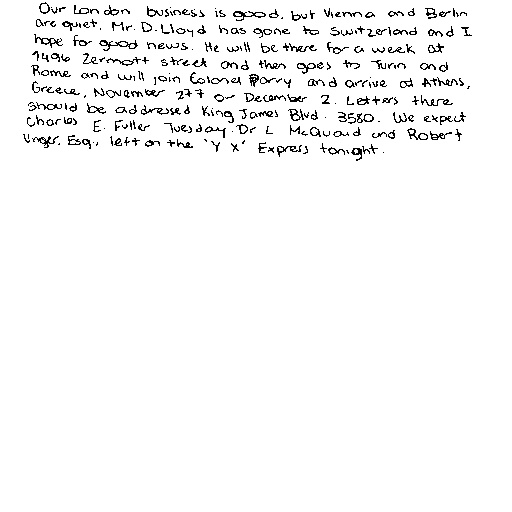 Our London business is good, but Vienna and Berlin
are quiet. Mr. D. Lloyd has gone to Switzerland and I
hope for good news. He will be there for a week at
1496 Zermott street and then goes to Turin and
Rome and will join Colonel Parry and arrive at Athens,
Greece, November 277 or December 2. Letters there
should be addressed King James Blvd. 3580. We expect
Charles E. Fuller Tuesday. Dr L McQuaid and Robert
Unger, Esq., left on the 'Y X' Express tonight.